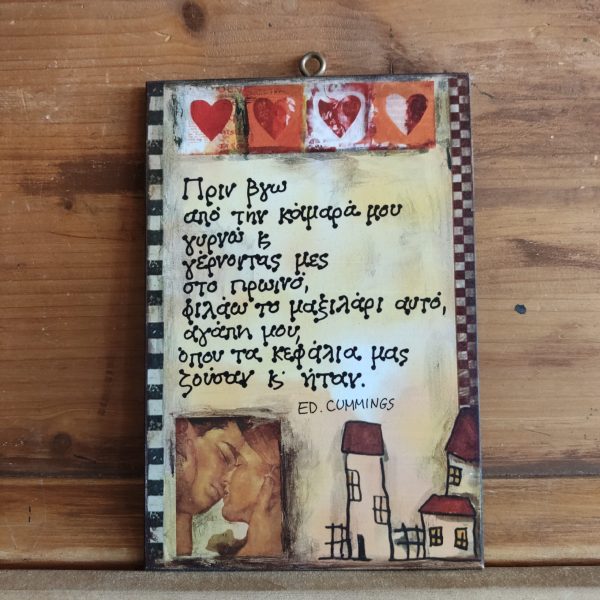 Πριν βγω
από την κάμαρά μου
γυρνώ κ
γέρνοντας μες
στο πρωινό,
φιλάω το μαξιλάρι αυτό,
αγάπη μου,
όπου τα κεφάλια μας
ζούσαν κ' ήταν.
ED. CUMMINGS